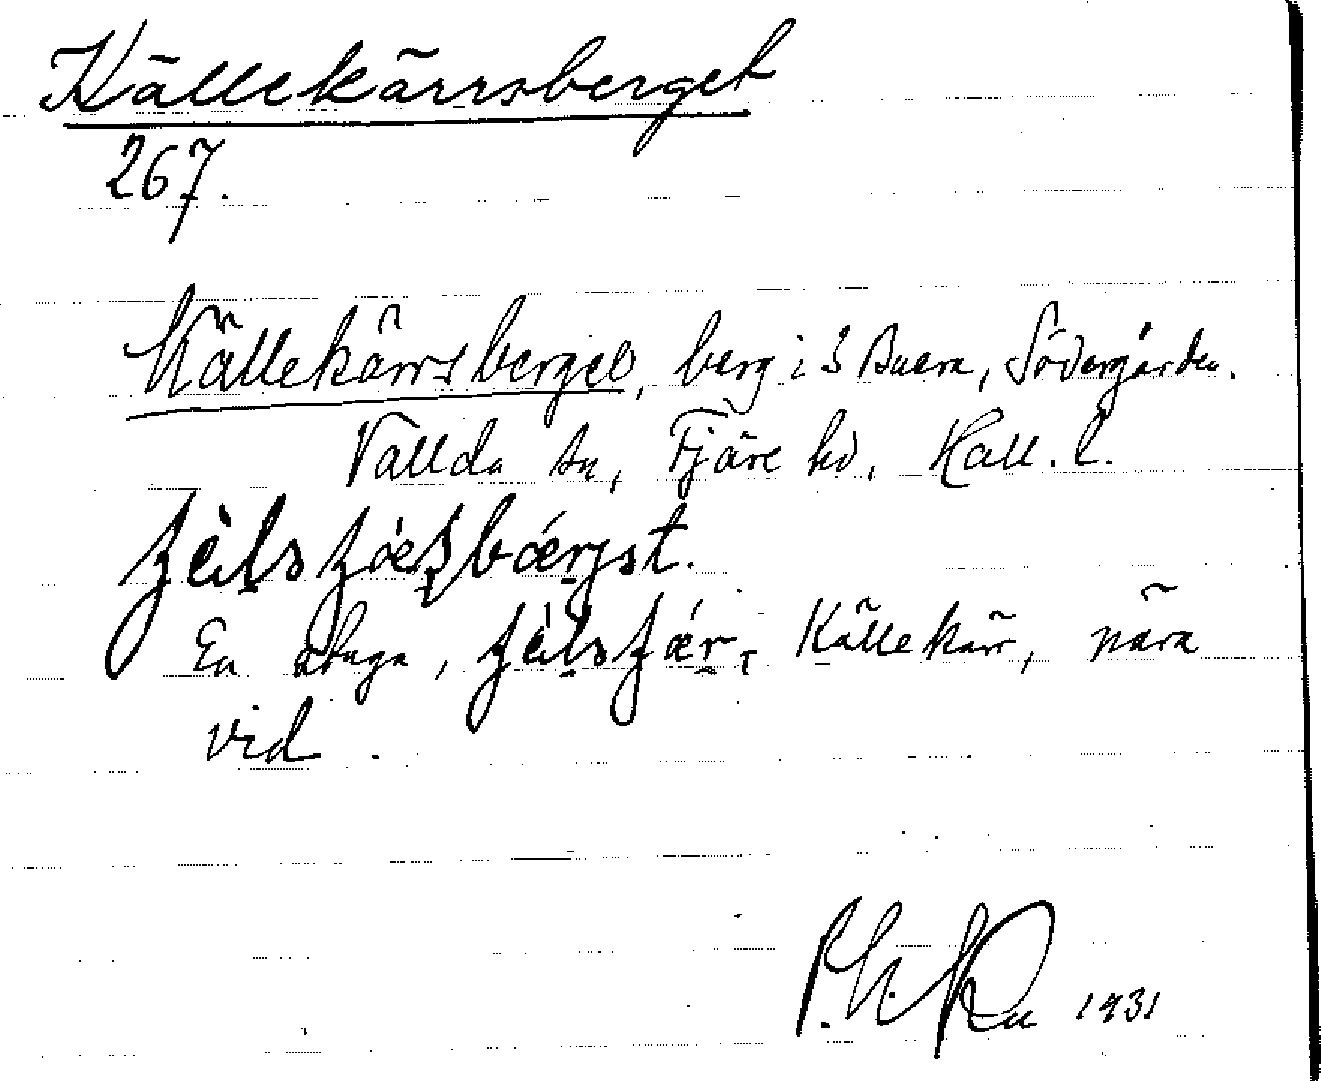 Källekärrsberget
267.
Källekärrsberget, berg i S Buera, Södergården.
Vallda sn, Fjäre hd, Hall. l.
En stuga, Källekärr, nära
vid.
1931